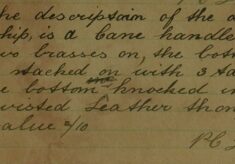 he description of the a
hip, is a Cane handle
wo brasses on, the bott
stacked on with 3 ta
e bottom knocked in
wisted Leather thon
alue 2/10
P C